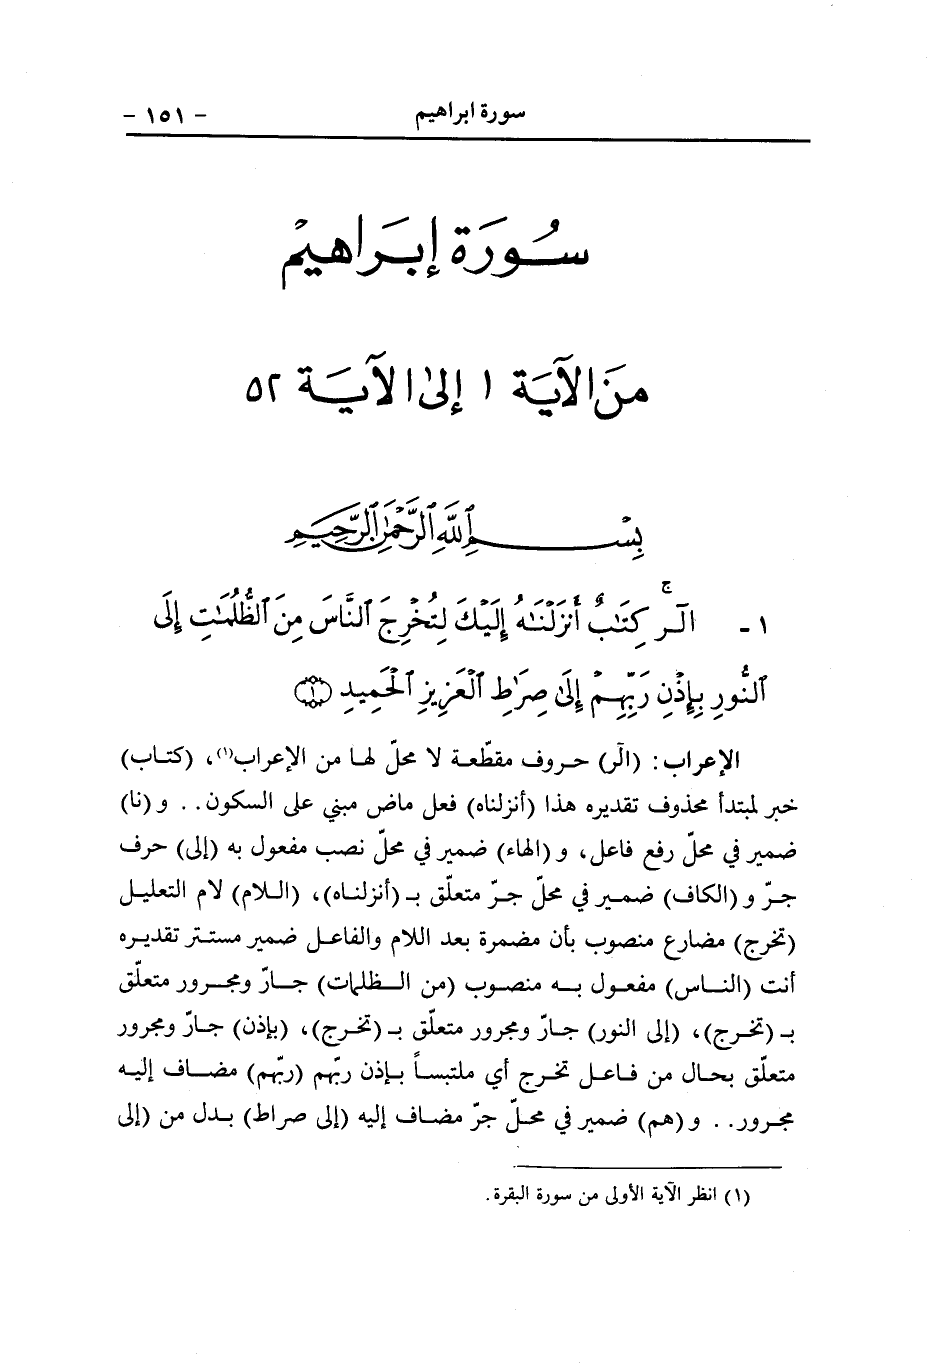 سورة ابراهيم - ١٥١ -
سُورَة إبرَاهيمْ
منَ الآيَة ١ إلىٰ الآيَة ٥٢
بِسْمِ ٱللَّهِ ٱلرَّحْمَٰنِ ٱلرَّحِيمِ
١ - الٓرۚ كِتَٰبٌ أَنزَلْنَٰهُ إِلَيْكَ لِتُخْرِجَ ٱلنَّاسَ مِنَ ٱلظُّلُمَٰتِ إِلَى
ٱلنُّورِ بِإِذْنِ رَبِّهِمْ إِلَىٰ صِرَٰطِ ٱلْعَزِيزِ ٱلْحَمِيدِ ﴿١﴾
الإعراب: (الٓر) حروف مقطّعة لا محلّ لها من الإعراب(١)، (كتاب)
خبر لمبتدأ محذوف تقديره هذا (أنزلناه) فعل ماض مبني على السكون.. و(نا)
ضمير في محلّ رفع فاعل، و(الهاء) ضمير في محلّ نصب مفعول به (إلى) حرف
جرّ و(الكاف) ضمير في محلّ جرّ متعلّق بـ (أنزلناه)، (اللام) لام التعليل
(تخرج) مضارع منصوب بأن مضمرة بعد اللام والفاعل ضمير مستتر تقديره
أنت (الناس) مفعول به منصوب (من الظلمات) جارّ ومجرور متعلّق
بـ (تخرج)، (إلى النور) جارّ ومجرور متعلّق بـ (تخرج)، (بإذن) جارّ ومجرور
متعلّق بحال من فاعل تخرج أي ملتبساً بإذن ربّهم (ربّهم) مضاف إليه
مجرور.. و(هم) ضمير في محلّ جرّ مضاف إليه (إلى صراط) بدل من (إلى
(١) انظر الآية الأولى من سورة البقرة.